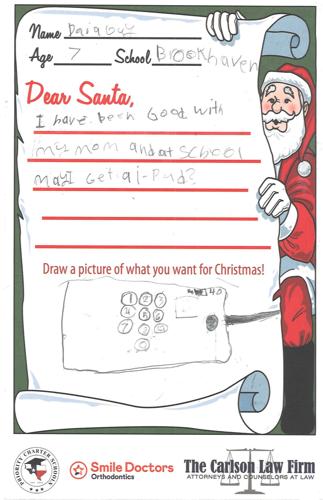 Name Daiaguz
Age 7 School Brookhaven
Dear Santa,
I have been Good with
my mom and at school
may I Get a i-Pad?
Draw a picture of what you want for Christmas!
40
1 2 3
4 5 6
7 8 9
0
PRIORITY CHARTER SCHOOLS
Smile Doctors
Orthodontics
The Carlson Law Firm
ATTORNEYS AND COUNSELORS AT LAW